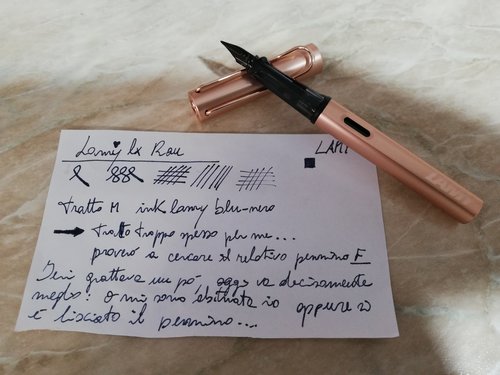 Lamy lx Rau
LAMY
Tratto M ink lamy blu-nero
→ Tratto troppo spesso per me...
proverò a cercare il relativo pennino F
Ieri grattava un pò oggi va decisamente
meglio: o mi sono abituata io oppure si
è lisciato il pennino...
LAMY